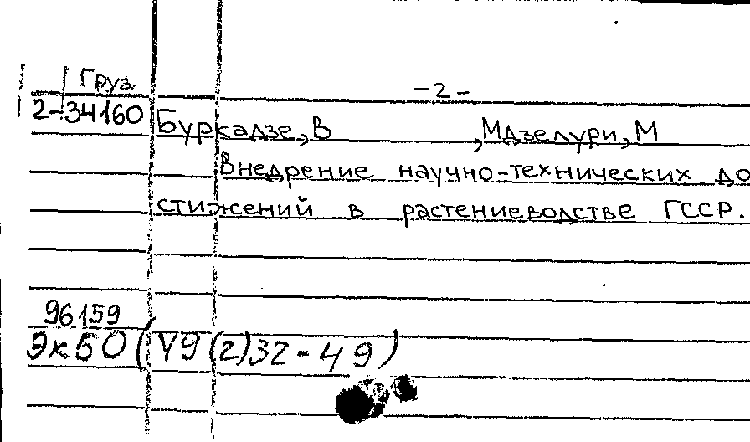 Груз.
-2-
2-34160
Буркадзе, В , Мдзелури, М
Внедрение научно-технических до
стижений в растениеводстве ГССР.
96159
ЭкБО (У9(2)32-49)